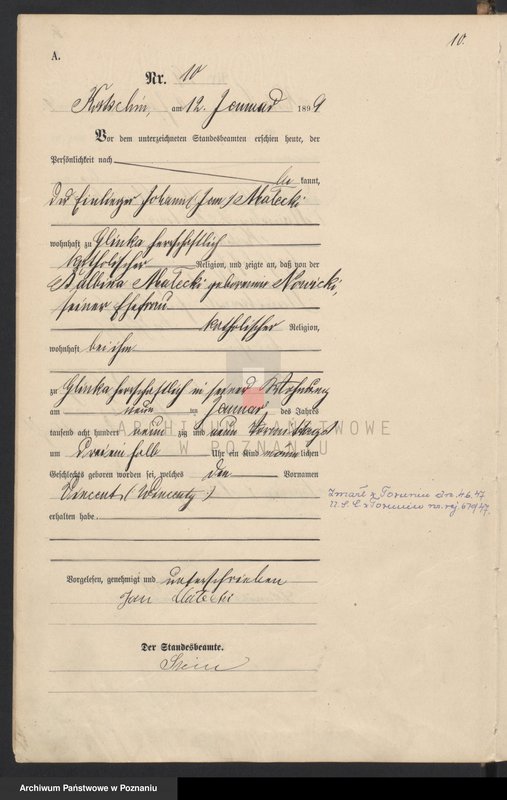 10.
A.
Nr. 10
Kotschin, am 12. Januar 1899
Vor dem unterzeichneten Standesbeamten erschien heute, der
Persönlichkeit nach
be kannt,
der Einlieger Johann (Jan) Małecki
wohnhaft zu Glinka herrschaftlich
katholischer Religion, und zeigte an, daß von der
Balbina Małecki geborenen Nowicki,
seiner Ehefrau
katholischer Religion,
wohnhaft bei ihm
zu Glinka herrschaftlich in seiner Wohnung
am neun ten Januar des Jahres
tausend acht hundert neun zig und neun Vormittags
um drei ein halb Uhr ein Kind männlichen
Geschlechts geboren worden sei, welches den Vornamen
Vincent (Wincenty)
erhalten habe
Zmarł w Toruniu dn. 4.6.47
U.S.C. w Toruniu nr. rej. 679/47.
Vorgelesen, genehmigt und unterschrieben
Jan Małecki
Der Standesbeamte.
ARCHIWUM PAŃSTWOWE
W POZNANIU
Archiwum Państwowe w Poznaniu